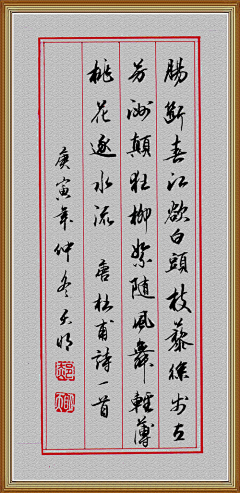 腸斷春江欲白頭杖藜徐步立
芳洲顛狂柳絮隨風舞輕薄
桃花逐水流 唐杜甫詩一首
庚寅年仲冬